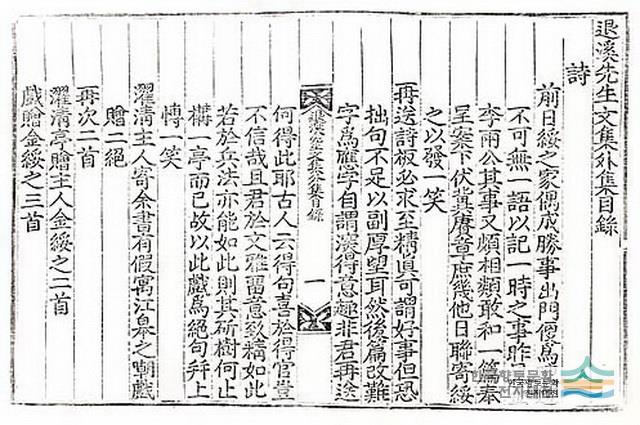 退溪先生文集外集目錄
詩
前日綏之家偶成勝事出門便爲
不可無一語以記一時之事昨
李兩公其事又頗相類敢和一篇奉
呈案下伏冀賡章庶幾他日聯寄綏
之以發一笑
再送詩板必求至精眞可謂好事但恐
拙句不足以副厚望耳然後篇改難
字爲雁字自謂深得意趣非君再送
退溪先生文集外集目錄 一
何得此耶古人云得句喜於得官豈
不信哉且君於文雅留意致精如此
若於兵法亦能如此則其斫樹何止
構一亭而已故以此戲爲絕句幷上
博一笑
濯淸主人寄余書有假寓江皐之嘲戲
贈二絕
再次二首
濯淸亭贈主人金綏之二首
戲贈金綏之三首
한국향토문화
전자대전